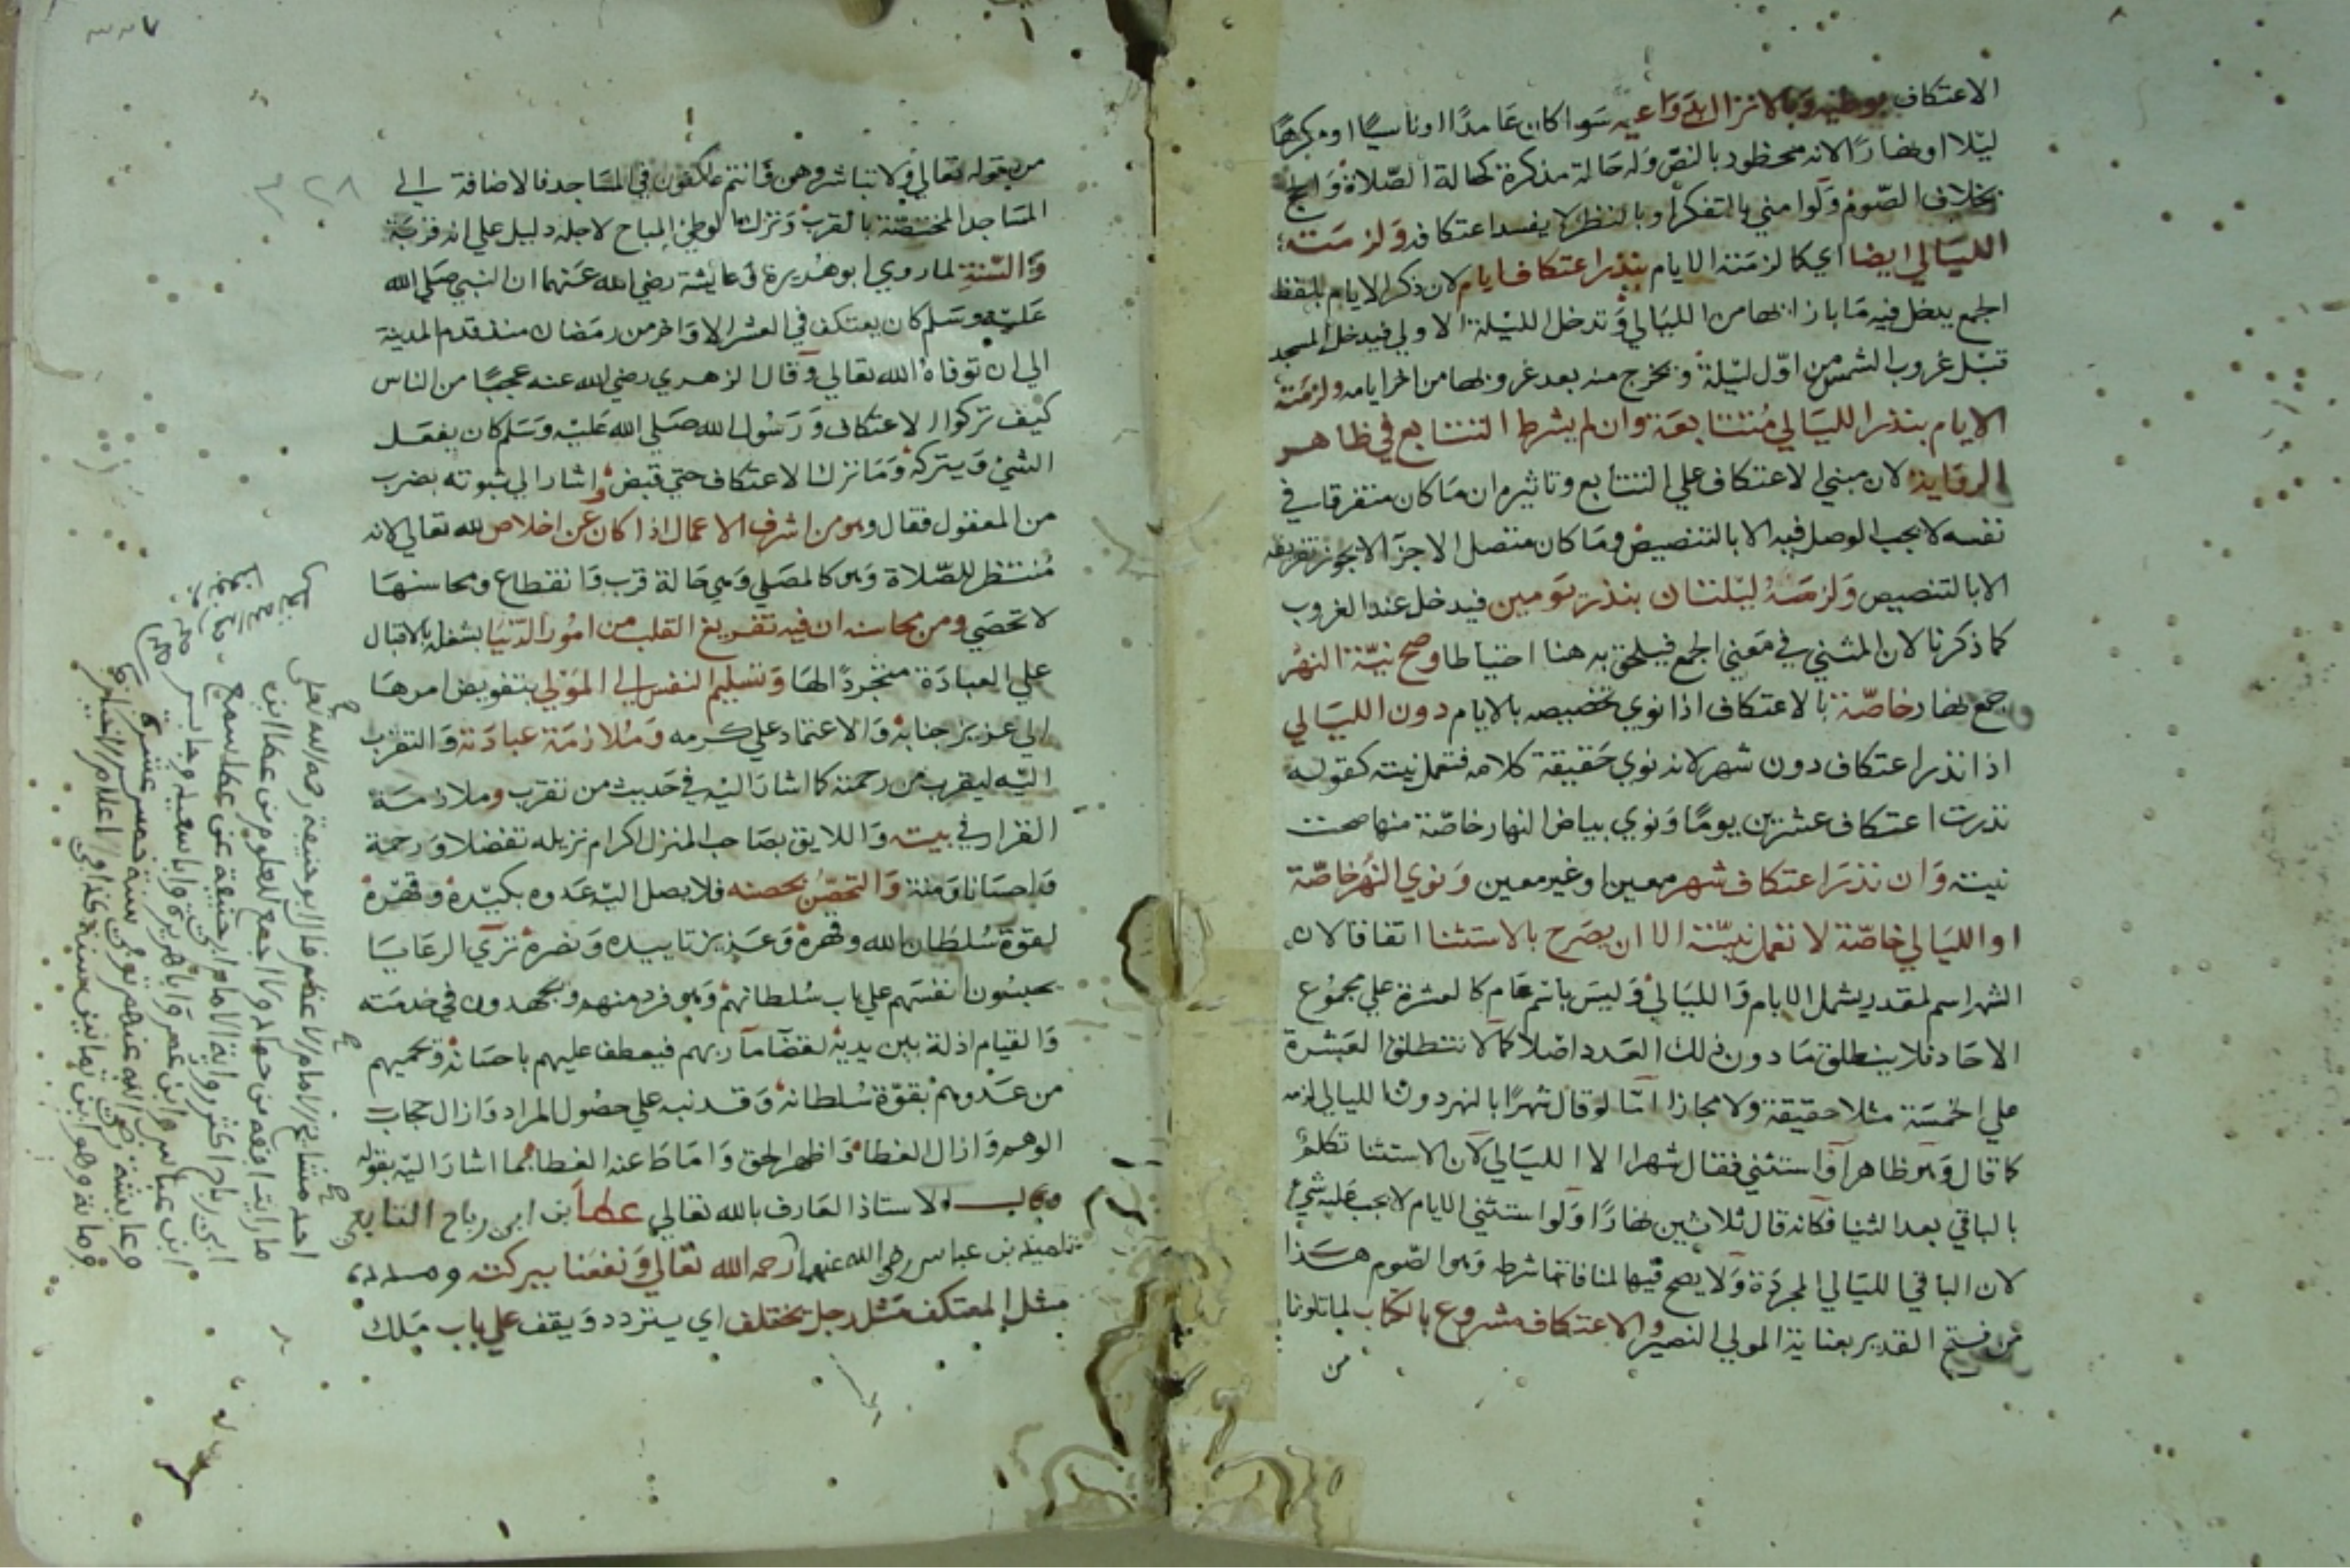 الاعتكاف بوطئه وبالانزال بدواعيه سوا كان عامدا او ناسيا او مكرها
ليلا او نهارا لانه محظور بالنص وله حالة مذكرة كحالة الصلاة والحج
بخلاف الصوم ولوا مني بالتفكر او بالنظر لا يفسد اعتكافه ولزمته
الليالي ايضا اي كما لزمته الايام بنذر اعتكاف ايام لان ذكر الايام بلفظ
الجمع يدخل فيه ما بازائها من الليالي وتدخل الليلة الاولي فيدخل المسجد
قبل غروب الشمس من اول ليلة ويخرج منه بعد غروبها من اخر ايامه ولزمته
الايام بنذر الليالي متتابعة وان لم يشرط التتابع في ظاهر
الرواية لان مبني الاعتكاف علي التتابع وتاثيره ان ما كان متفرقا في
نفسه لا يجب الوصل فيه الا بالتنصيص وما كان متصل الاجزا لا يجوز تفريقه
الا بالتنصيص ولزمته ليلتان بنذر يومين فيدخل عند الغروب
كما ذكرنا لان المثني في معني الجمع فيلحق به هنا احتياطا وصح نية النهر
جمع نهار خاصة بالاعتكاف اذا نوي تخصيصه بالايام دون الليالي
اذا نذر اعتكاف دون شهر لانه نوي حقيقة كلامه فتعمل نيته كقوله
نذرت اعتكاف عشرين يوما ونوي بياض النهار خاصة منها صحت
نيته وان نذر اعتكاف شهر معين او غير معين ونوي النهر خاصة
او الليالي خاصة لا تعمل نيته الا ان يصرح بالاستثنا اتفاقا لان
الشهر اسم لمقدر يشمل الايام والليالي وليس باسم عام كالعشرة علي مجموع
الاحاد فلا ينطلق ما دون ذلك العدد اصلا كما لا تنطلق العشرة
علي الخمسة مثلا حقيقة ولا مجازا اما لو قال شهرا بالنهر دون الليالي لزمه
كما قال وهو ظاهر او استثني فقال شهرا الا الليالي لان الاستثنا تكلم
بالباقي بعد الثنيا فكانه قال ثلاثين نهارا ولو استثني الايام لا يجب عليه شي
لان الباقي الليالي المجردة ولا يصح فيها لمنافاتها شرطه وهو الصوم هذا
من فتح القدير بعناية المولي النصير والاعتكاف مشروع بالكتاب لما تلونا
من
٣٢٨
من بقوله تعالي ولا تباشروهن وانتم عاكفون في المساجد فالاضافة الي
المساجد المختصة بالقرب وترك الوطئ المباح لاجله دليل علي انه قربة
والسنة لما روي ابو هريرة وعايشة رضي الله عنهما ان النبي صلي الله
عليه وسلم كان يعتكف في العشر الاواخر من رمضان منذ قدم المدينة
الي ان توفاه الله تعالي وقال الزهري رضي الله عنه عجبا من الناس
كيف تركوا الاعتكاف ورسول الله صلي الله عليه وسلم كان يفعل
الشي ويتركه وما ترك الاعتكاف حتي قبض واشار الي ثبوته بضرب
من المعقول فقال وهو من اشرف الاعمال اذا كان عن اخلاص لله تعالي لانه
منتظر للصلاة وهو كالمصلي وهي حالة قرب وانقطاع ومحاسنها
لا تحصي ومن محاسنه ان فيه تفريغ القلب من امور الدنيا بشغله بالاقبال
علي العبادة متجردا لها وتسليم النفس الي المولي بتفويض امرها
الي عزيز جنابه والاعتماد علي كرمه وملازمة عبادته والتقرب
اليه ليقرب من رحمته كما اشار اليه في حديث من تقرب وملازمة
القرار في بيته واللايق بصاحب المنزل اكرام نزيله تفضلا ورحمة
واحسانا ومنة والتحصن بحصنه فلا يصل اليه عدوه بكيده وقهره
لقوة سلطان الله وقهره وعزيز تاييده ونصره تري الرعايا
يحبسون انفسهم علي باب سلطانهم وهو فرد منهم ويجهدون في خدمته
والقيام اذلة بين يديه لقضا مآربهم فيعطف عليهم باحسانه ويحميهم
من عدوهم بقوة سلطانه وقد نبه علي حصول المراد وازال حجاب
الوهم وازال الغطا واظهر الحق واماط عنه الغطا بما اشار اليه بقوله
وقال الاستاذ العارف بالله تعالي عطا بن ابي رباح التابعي
تلميذ بن عباس رضي الله عنهما رحمه الله تعالي ونفعنا ببركته
مثل المعتكف مثل رجل يختلف اي يتردد ويقف علي باب ملك
احد مشايخ الامام الاعظم قال ابو حنيفة رحمه الله تعالى
ما رايت افقه من حماد ولا اجمع للعلوم من عطا ابن
ابي رباح اكثر رواية الامام ابي حنيفة عن عطا سمع
ابن عباس وابن عمر وابا هريرة وابا سعيد وجابر
وعايشة رضي الله عنهم توفي سنة خمس عشرة
وماية وهو ابن ثمانين سنة كذا في اعلام الاخيار